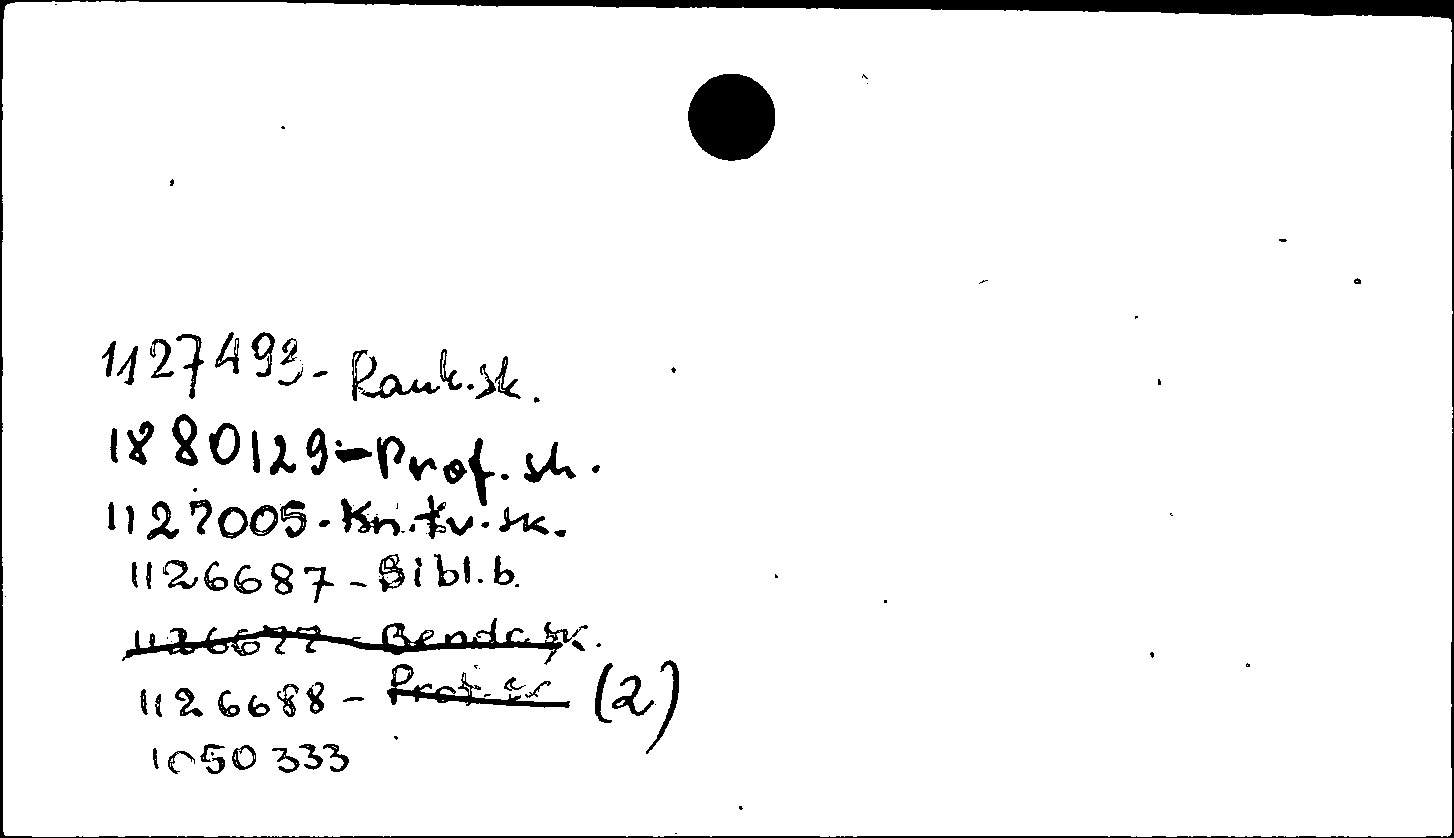 1127493 - Rank.sk.
1880129 - Prof. sk.
1127005 - Kn.tv. sk.
1126687 - Bibl. b.
1126677 - Bendr. sk.
1126688 - Prof. sk. (2)
1050333